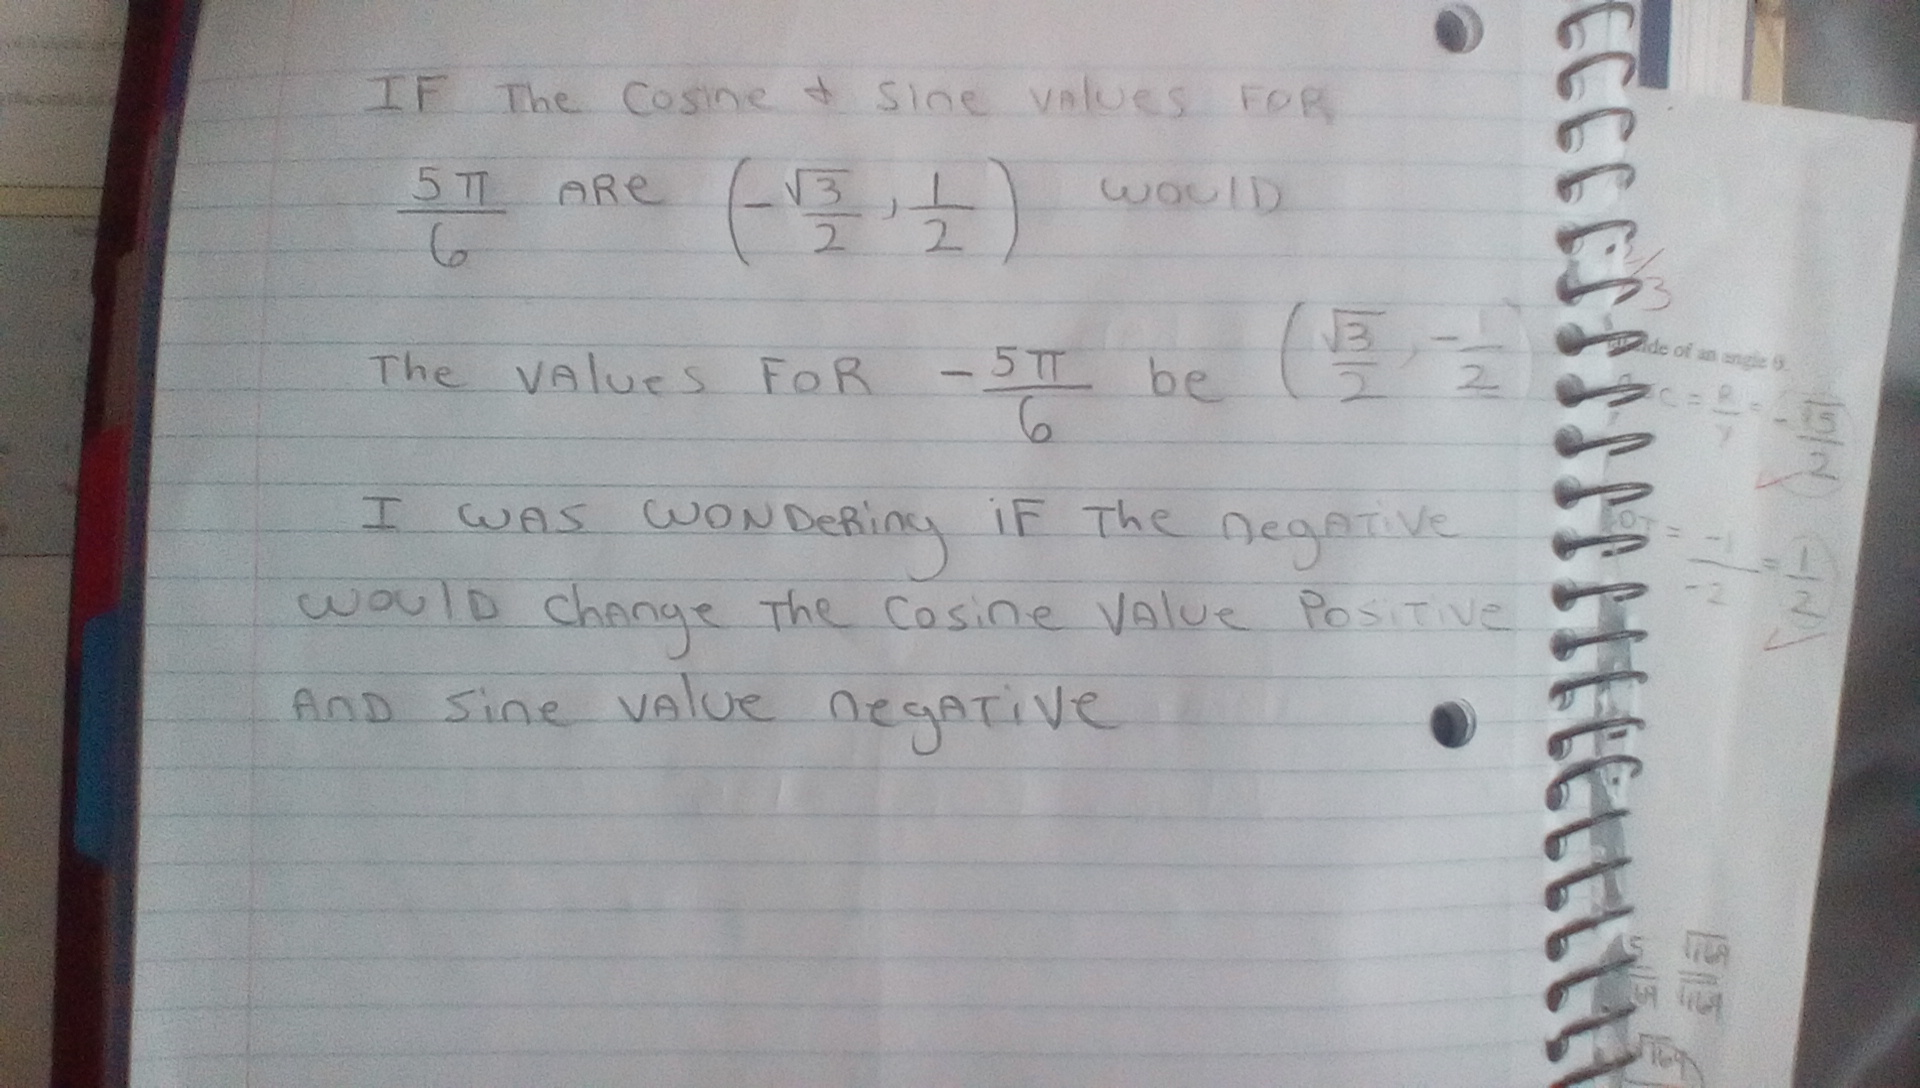 IF The Cosine & Sine values FOR
5π/6 ARe (-√3/2, 1/2) would
The values FoR -5π/6 be (√3/2, -1/2)
I was wondering iF The negative
would change The cosine value Positive
And sine value negative
√3
ide of an angle θ.
C = R/y = -√5/2
OT = -1/-2 = 1/2